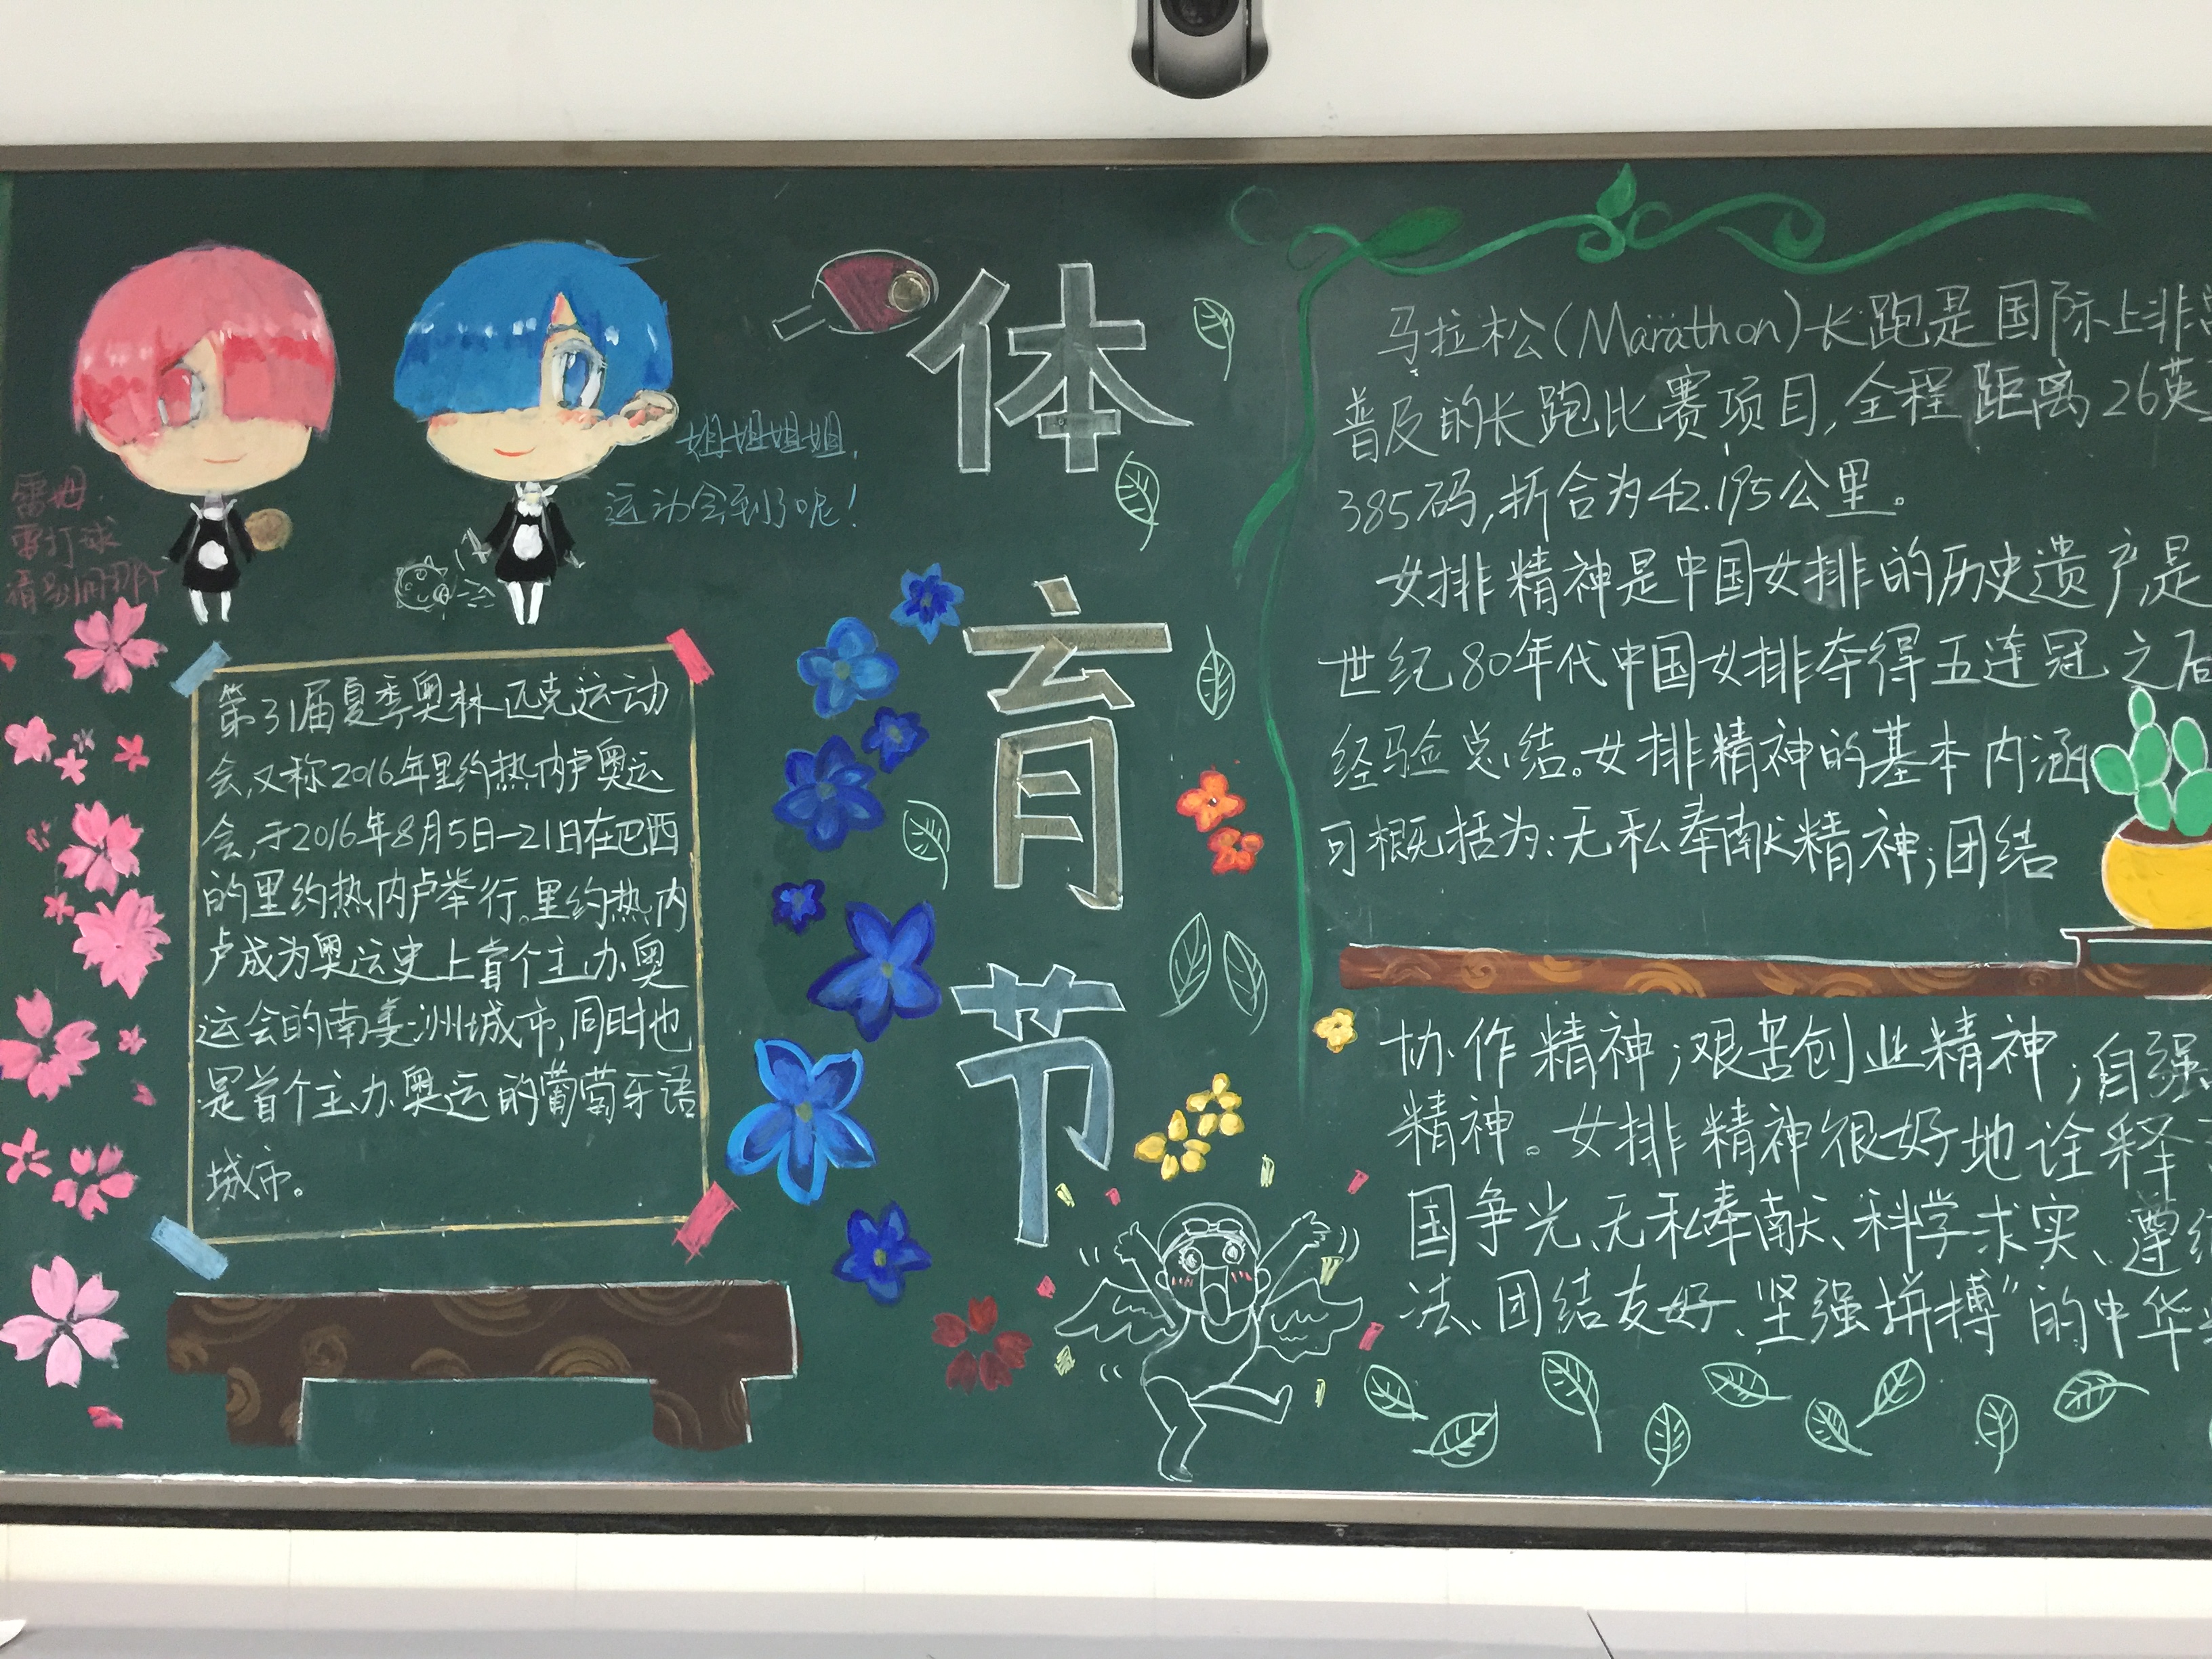 雷姆
雷打球
请别用
姐姐姐姐,
运动会到了呢!
第31届夏季奥林匹克运动
会,又称2016年里约热内卢奥运
会,于2016年8月5日-21日在巴西
的里约热内卢举行。里约热内
卢成为奥运史上首个主办奥
运会的南美洲城市,同时也
是首个主办奥运的葡萄牙语
城市。
体
育
节
马拉松(Marathon)长跑是国际上非
普及的长跑比赛项目,全程距离26英
385码,折合为42.195公里。
女排精神是中国女排的历史遗产,是
世纪80年代中国女排夺得五连冠之后
经验总结。女排精神的基本内涵
可概括为:无私奉献精神;团结
协作精神;艰苦创业精神;自强
精神。女排精神很好地诠释
国争光、无私奉献、科学求实、遵纪
法、团结友好、坚强拼搏”的中华